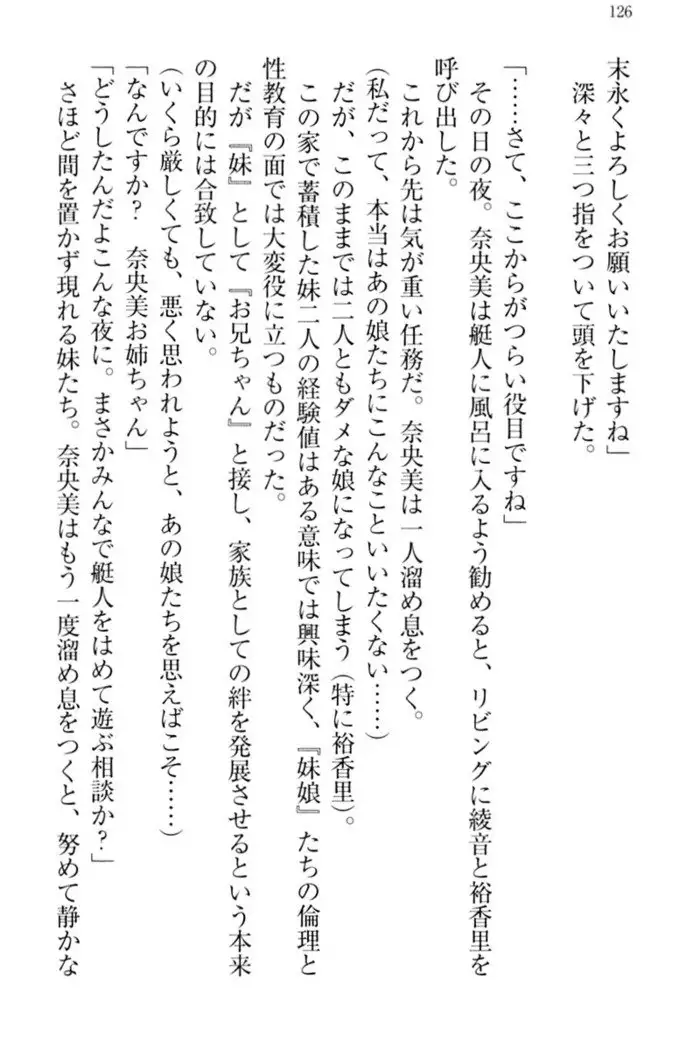 126
末永くよろしくお願いいたしますね」
深々と三つ指をついて頭を下げた。
「……さて、ここからがつらい役目ですね」
その日の夜。奈央美は艇人に風呂に入るよう勧めると、リビングに綾音と裕香里を
呼び出した。
これから先は気が重い任務だ。奈央美は一人溜め息をつく。
(私だって、本当はあの娘たちにこんなこといいたくない……)
だが、このままでは二人ともダメな娘になってしまう(特に裕香里)。
この家で蓄積した妹二人の経験値はある意味では興味深く、『妹娘』たちの倫理と
性教育の面では大変役に立つものだった。
だが『妹』として『お兄ちゃん』と接し、家族としての絆を発展させるという本来
の目的には合致していない。
(いくら厳しくても、悪く思われようと、あの娘たちを思えばこそ……)
「なんですか? 奈央美お姉ちゃん」
「どうしたんだよこんな夜に。まさかみんなで艇人をはめて遊ぶ相談か?」
さほど間を置かず現れる妹たち。奈央美はもう一度溜め息をつくと、努めて静かな